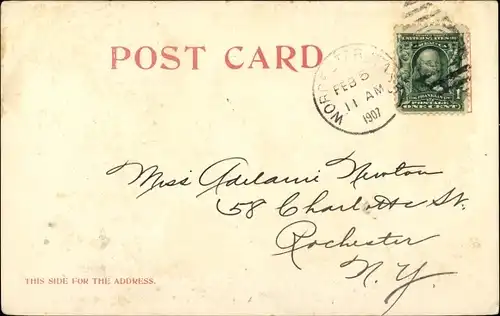 POST CARD
WORCESTER, MASS.
FEB 6
11 AM
1907
UNITED STATES OF AMERICA
FRANKLIN
POSTAGE
ONE CENT
Miss Adelaine Newton
58 Charlotte St.
Rochester
N.Y.
THIS SIDE FOR THE ADDRESS.